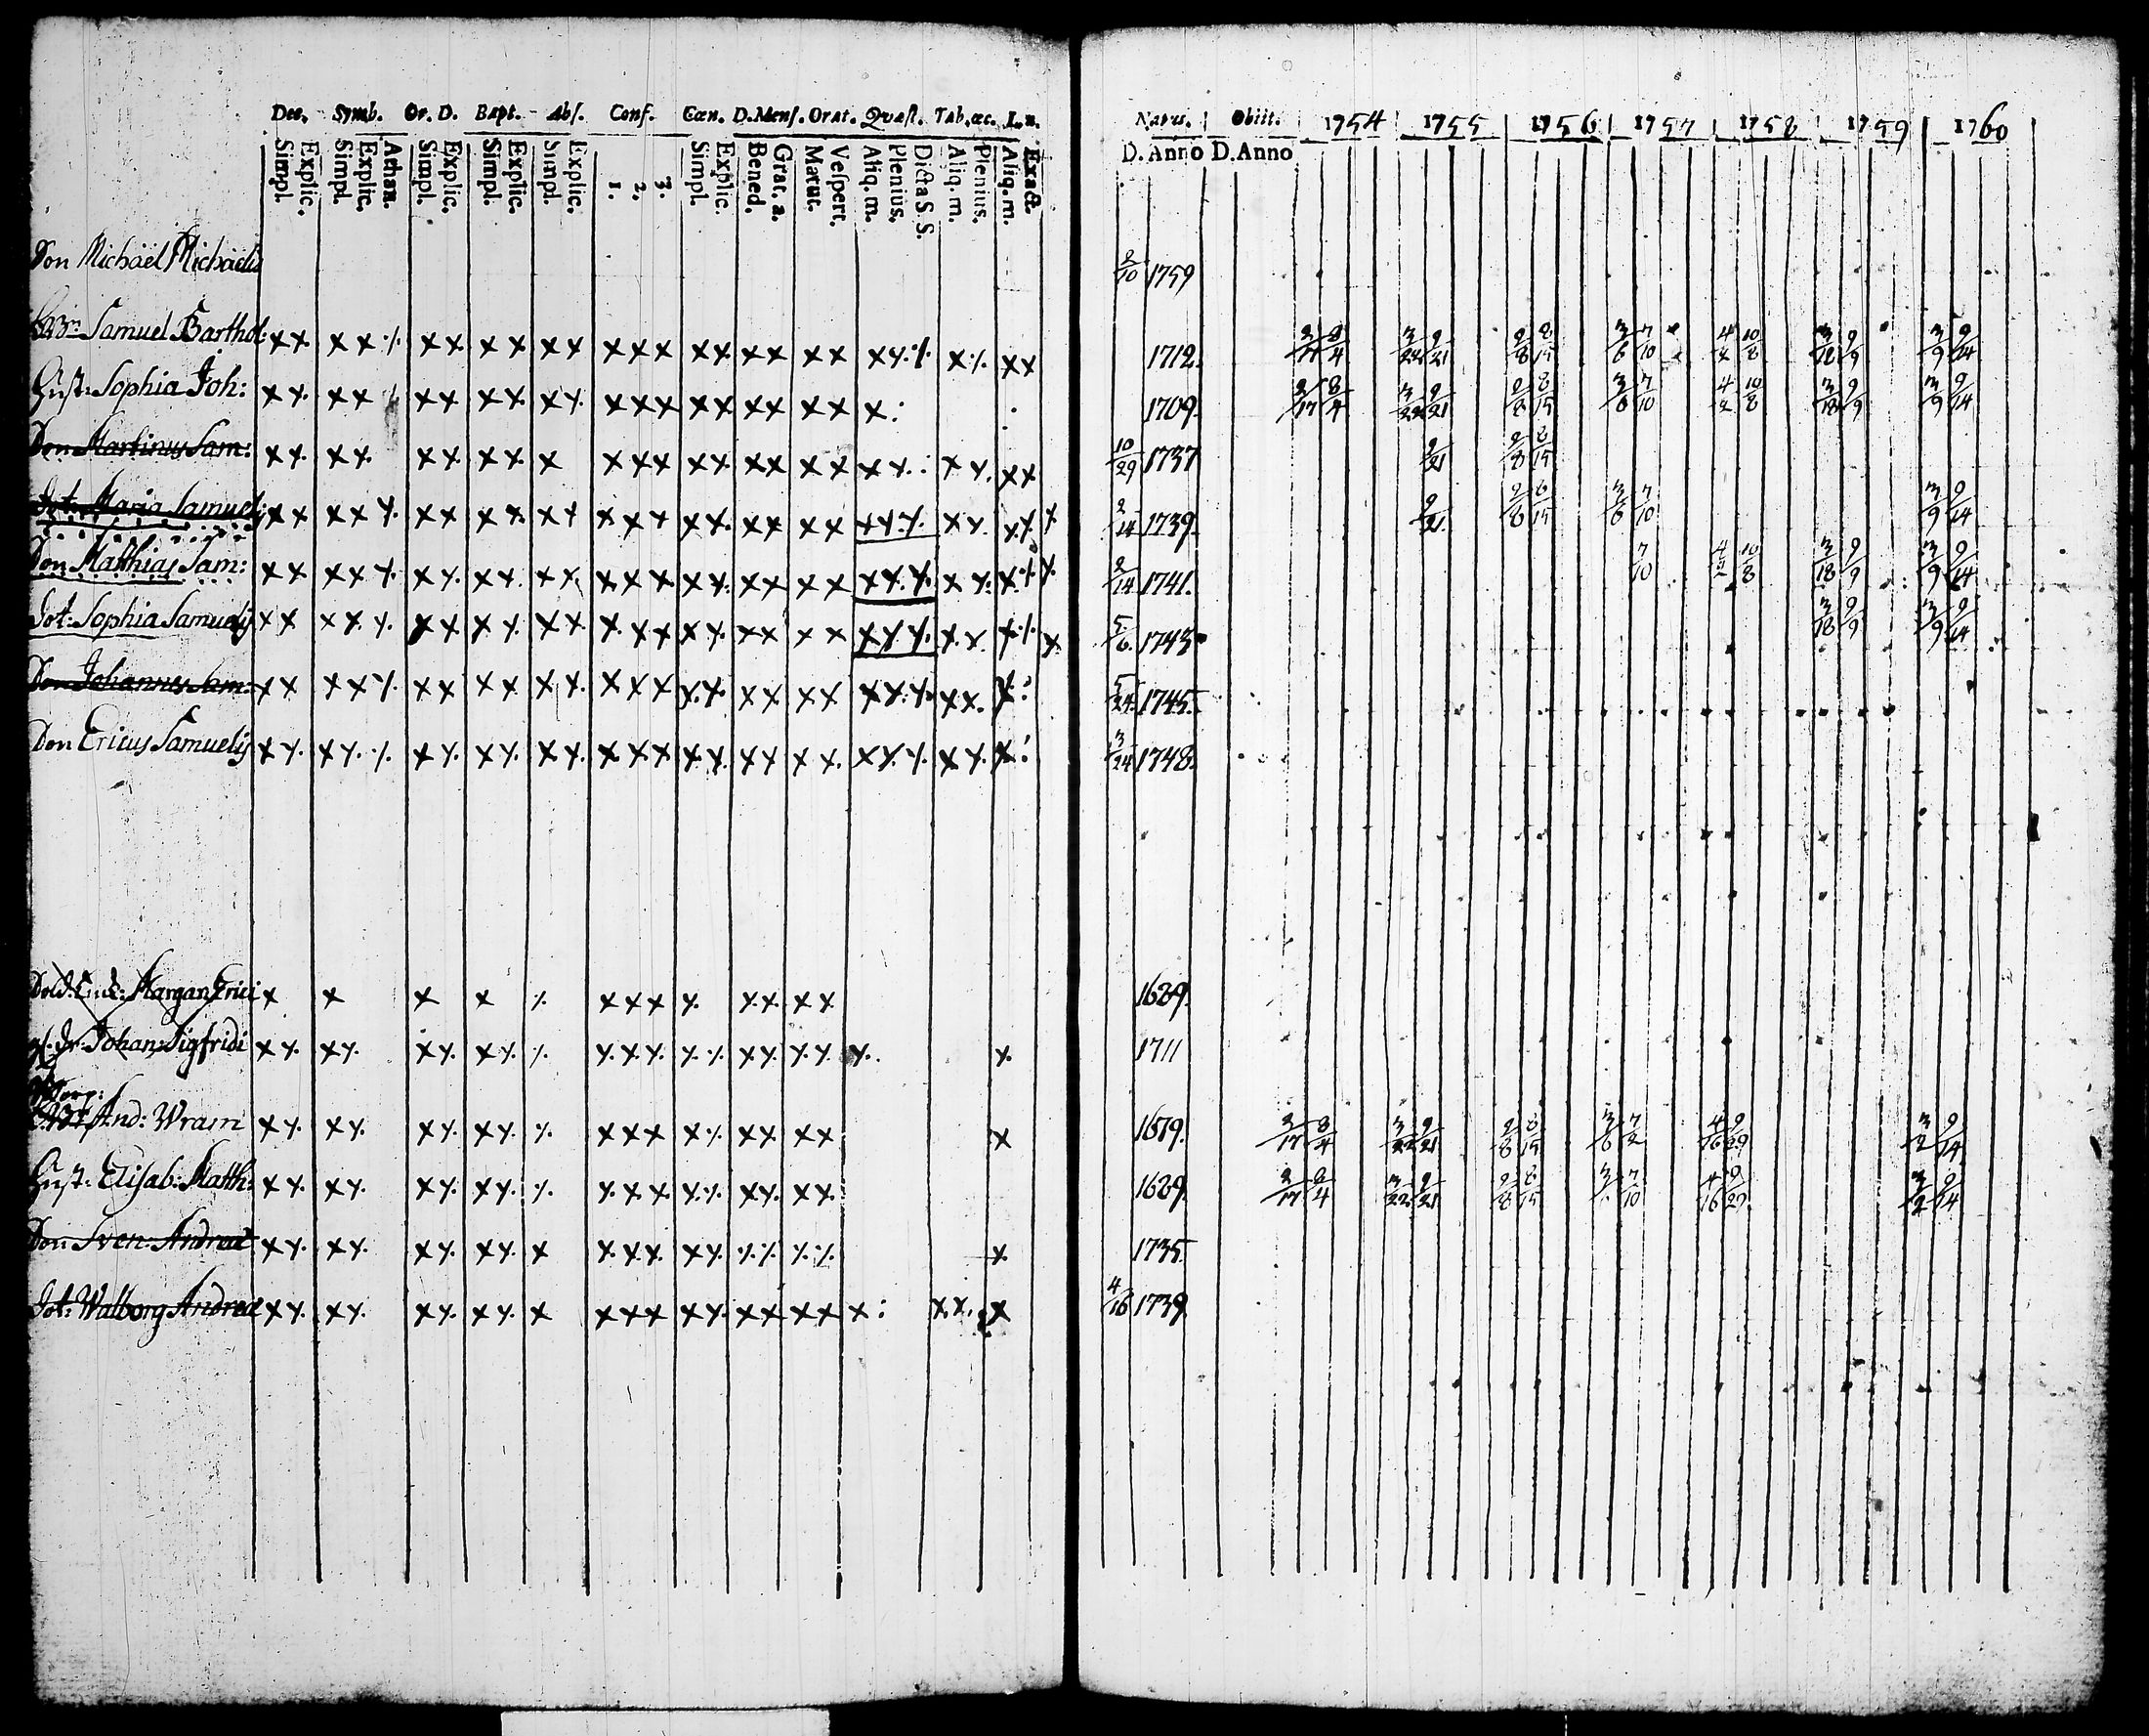 Dec. Symb. Or. D. Bapt. Abs. Conf. Cœn. D. Mens. Orat. Qvæst. Tab. œc. L. n. Natus. Obiit. 1754 1755 1756 1757 1758 1759 1760
Simpl. Explic. Simpl. Explic. Athan. Simpl. Explic. Simpl. Explic. Simpl. Explic. 1. 2. 3. Simpl. Explic. Bened. Grat. a. Matut. Vespert. Aliq. m. Plenius. Dicta S. S. Aliq. m. Plenius. Aliq. m. Exact. D. Anno D. Anno
Son Michaël Michaëlis 2/10 1759
Samuel Barthol: xx xx·/· xx xx xx xxx xx xx xx xx·/· x·/· xx 1712. 3/17 8/4 3/22 9/21 9/8 8/15 3/6 7/10 4/2 10/8 3/18 9/9 3/9 9/14
Hust: Sophia Joh: xx xx xx xx xx xxx xx xx xx x: 1709. 3/17 8/4 3/22 9/21 9/8 8/15 3/6 7/10 4/2 10/8 3/18 9/9 3/9 9/14
Son Martinus Sam: xx xx xx xx x xxx xx xx xx xx: xx xx 10/29 1737 9/21 9/8 8/15
Dot: Maria Samuel: xx xxx xx xx xx xxx xx xx xx xxx xx xx x 2/14 1739. 9/21 9/8 8/15 3/6 7/10 3/9 9/14
Son Matthias Sam: xx xxx xx xx xx xxx xx xx xx xxx xx x·/· x 2/14 1741. 7/10 4/2 10/8 3/18 9/9 3/9 9/14
Dot: Sophia Samuelis xx xxx xx xx xx xxx xx xx xx xxx xx x·/· x 5/6 1743 3/18 9/9 3/9 9/14
Son Johannes Sam: xx xx·/· xx xx xx xxx xx xx xx xxx xx x: 5/24 1745.
Son Ericus Samuelis xx xx·/· xx xx xx xxx xx xx xx xxx xx x: 3/24 1748.
Margar: Erici x x x x ·/· xxx x xx xx 1689.
Johan: Sigfridi xx xx xx xx ·/· xxx x·/· xx xx x x 1711
Torp:
And: Wram xx xx xx xx ·/· xxx x·/· xx xx x 1679. 3/17 8/4 3/22 9/21 9/8 8/15 3/6 7/2 4/16 9/29 3/2 9/14
Hust: Elisab: Matth: xx xx xx xx ·/· xxx x·/· xx xx 1689. 3/17 8/4 3/22 9/21 9/8 8/15 7/10 4/16 9/29 3/2 9/14
Son Sven Andreæ xx xx xx xx x xxx xx ·/·/· ·/·/· x 1735.
Dot: Walborg Andreæ xx xx xx xx x xxx xx xx xx x: xx. x 4/16 1739